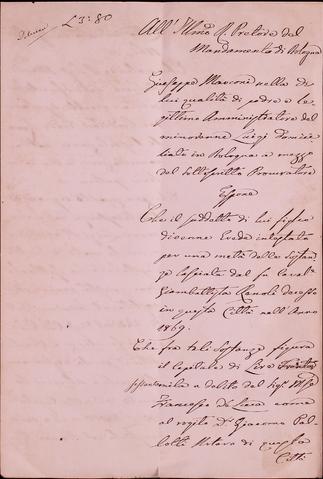 £ 3:80
All'Illmo R. Pretore del
Mandamento di Bologna
Giuseppe Marconi nella di
lui qualità di padre e Le
gittimo Amministratore del
minorenne Luigi domici
liato in Bologna a mezzo
del sottoscritto Procuratore
Espone
Che il suddetto di lui figlio
divenne Erede intestato
per una metà della Sostan
za lasciata dal fu Caval.
Giambattista decesso
in questa Città nell'Anno
1869.
Che fra tale Sostanza figura
il capitale di Lire
a debito del Sig.
Francesco De Luca come
al rogito Dr. Giacomo Pal
lotti Notaro di questa
Città